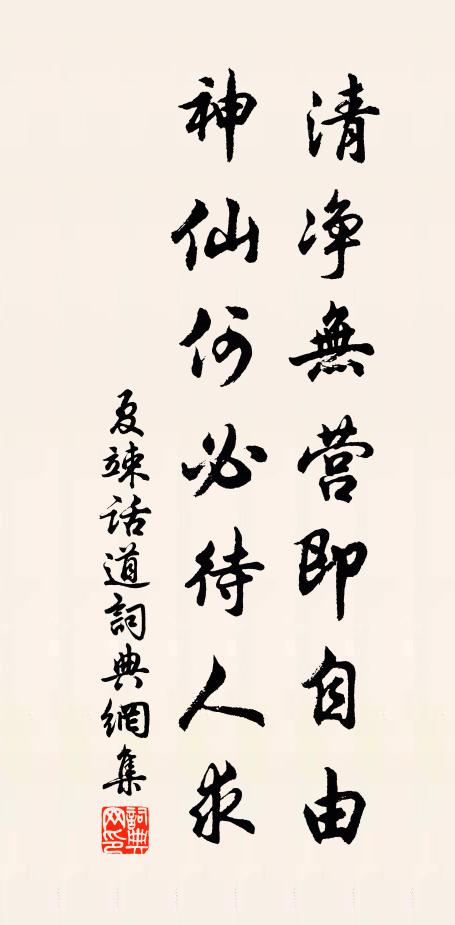 清净無营即自由
神仙何必待人求
夏竦话道詞典網集
詞典網印